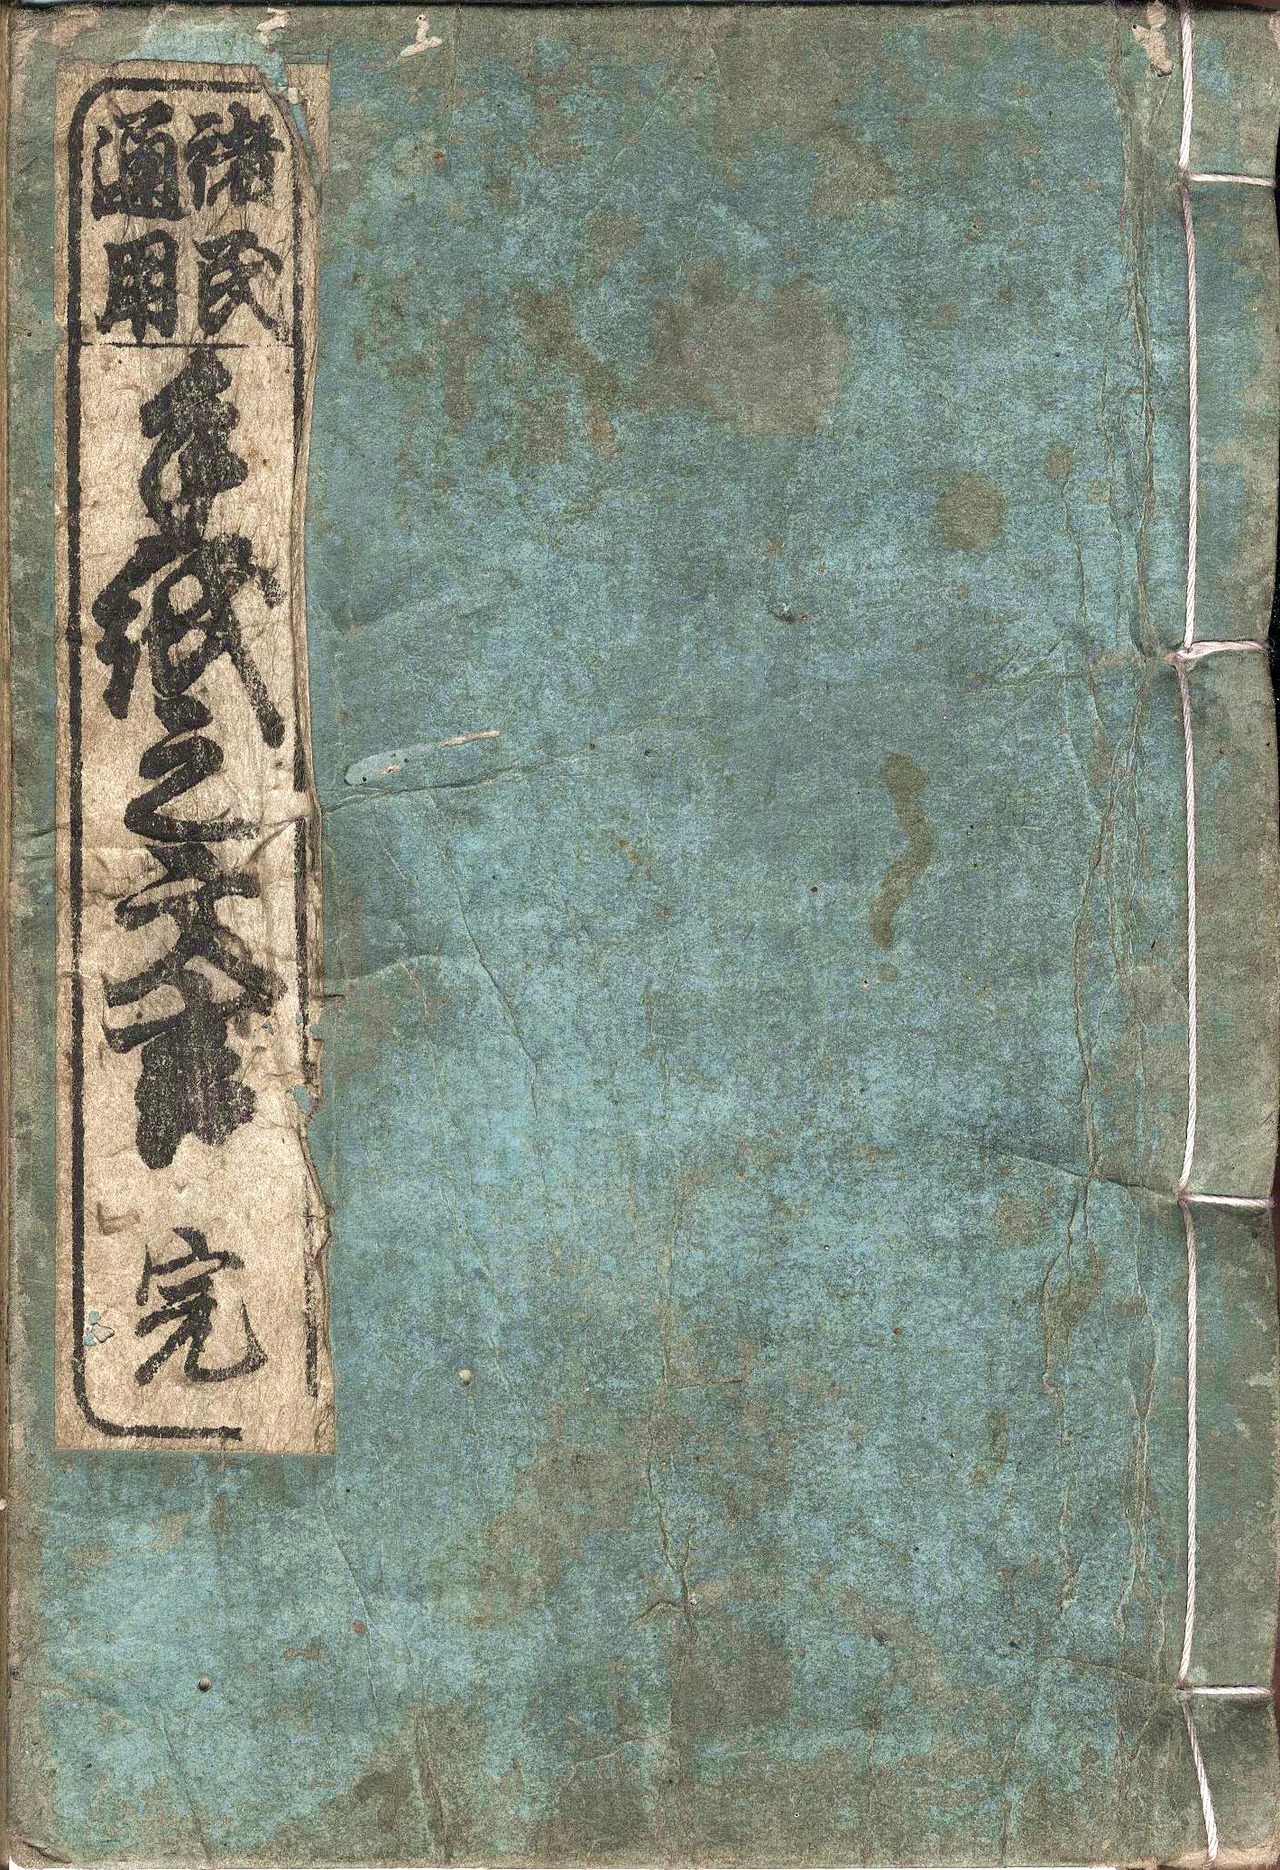 諸民
通用
手紙之文言
完